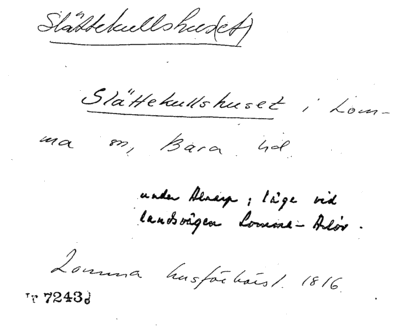 Slättekullshus(et)
Slättekullshuset i Lom-
ma sn, Bara hd.
under Alnarp; läge vid
landsvägen Lomma-Arlöv.
Lomma husförhörsl. 1816.
7243